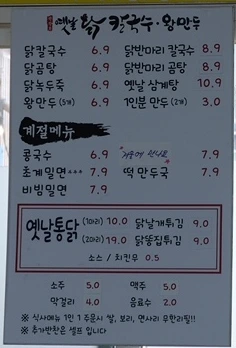 옛날 닭 칼국수·왕만두
닭칼국수 6.9 닭반마리 칼국수 8.9
닭곰탕 6.9 닭반마리 곰탕 8.9
닭녹두죽 6.9 옛날 삼계탕 10.9
왕만두(5개) 6.9 1인분 만두(2개) 3.0
계절메뉴
콩국수 6.9 7.9
초계밀면*** 7.9 떡만두국 7.9
비빔밀면 7.9
옛날통닭 (1마리) 10.0 닭날개튀김 9.0
(2마리) 19.0 닭똥집튀김 9.0
소스 / 치킨무 0.5
소주 5.0 맥주 5.0
막걸리 4.0 음료수 2.0
※ 식사메뉴 1인 1 주문시 쌀, 보리, 면사리 무한리필!!
※ 추가반찬은 셀프 입니다